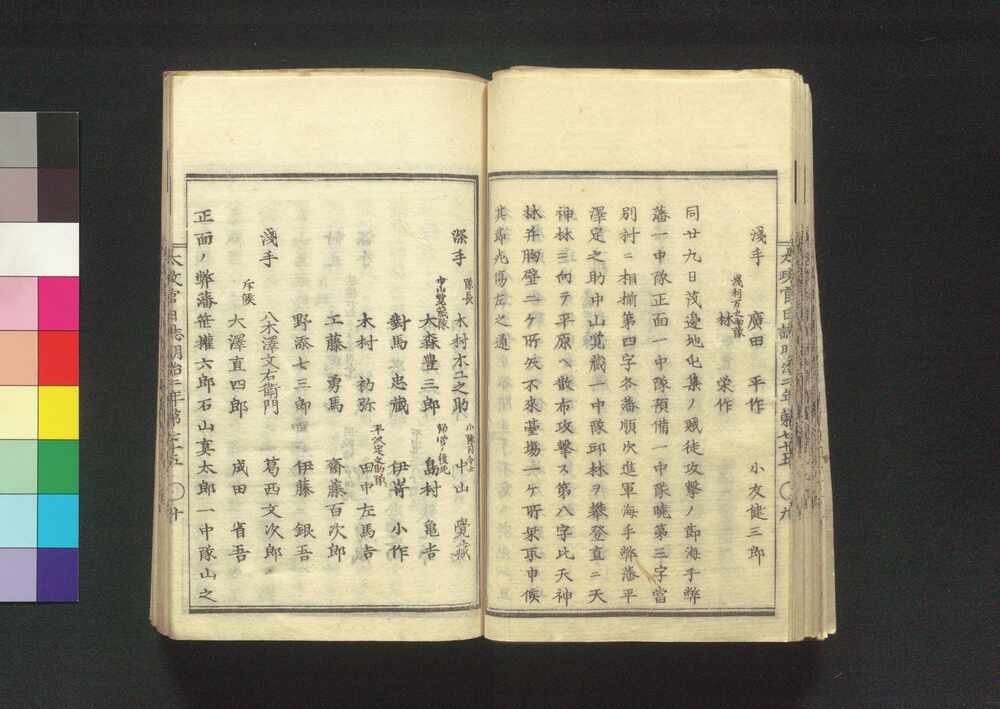 淺手
廣田　平作　　小友健三郎
淺利万之助隊
林　榮作
同廿九日茂邊地屯集ノ賊徒攻撃ノ節海手弊
藩一中隊正面一中隊預備一中隊曉第三字當
別村ニ相揃第四字各藩順次進軍海手弊藩平
澤定之助中山覚藏一中隊邱林ヲ攀登直ニ天
神林ニ向テ平原ヘ散布攻撃ス第八字比天神
林并胸壁二ケ所矢不來墓場一ケ所乗取申候
其節死傷左之通
深手
隊長
木村木工之助
小隊司令士
中山　覺藏
中山覺藏隊
大森豊三郎
歸營ノ後死
島村　亀吉
對馬　忠藏　伊嵜　小作
平沢定之助隊
木村　初弥　田中左馬吉
工藤　勇馬　齋藤百次郎
野添七三郎　伊藤　銀吾
淺手
八木澤文右衛門　葛西文次郎
斥候
大澤直四郎　成田　省吾
正面ノ弊藩笹權六郎石山真太郎一中隊山之
太政官日誌明治二年